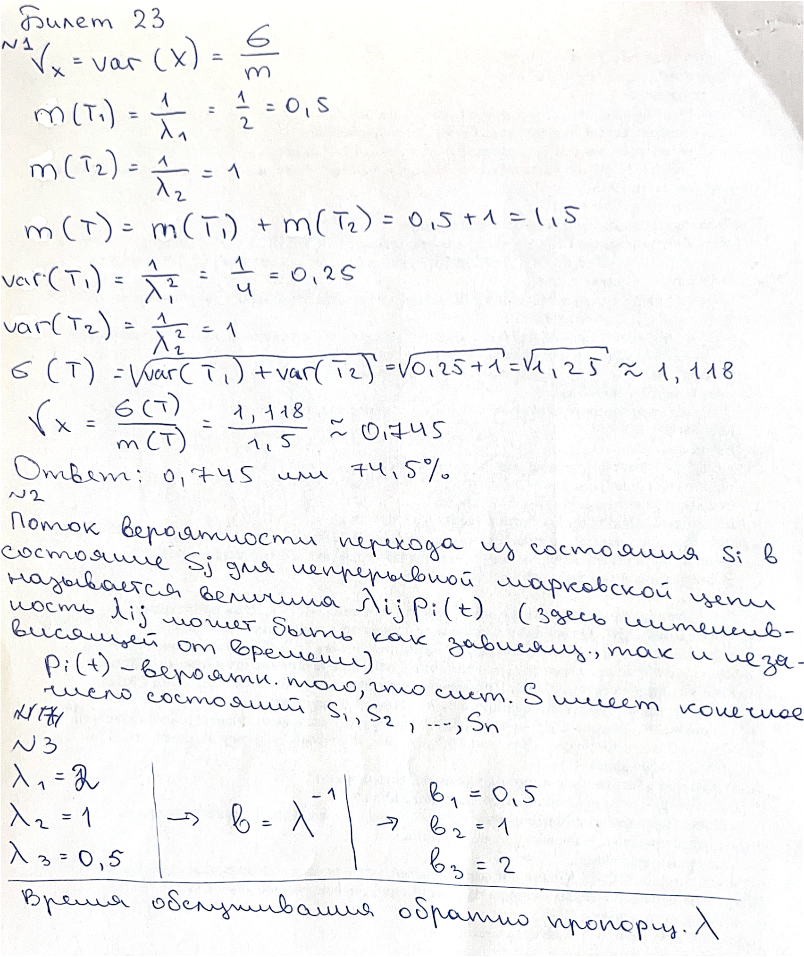 Билет 23
№1 Vx = var (X) = σ/m
m(T₁) = 1/λ₁ = 1/2 = 0,5
m(T₂) = 1/λ₂ = 1
m(T) = m(T₁) + m(T₂) = 0,5 + 1 = 1,5
var(T₁) = 1/λ₁² = 1/4 = 0,25
var(T₂) = 1/λ₂² = 1
σ (T) = √(var(T₁) + var(T₂)) = √(0,25+1) = √1,25 ≈ 1,118
Vx = σ(T)/m(T) = 1,118/1,5 ≈ 0,745
Ответ: 0,745 или 74,5%
№2
Поток вероятности перехода из состояния Si в
состояние Sj для непрерывной марковской цепи
называется величина λij pi(t) (здесь интенсив-
ность λij может быть как зависящ., так и неза-
висящей от времени)
pi(t) - вероятн. того, что сист. S имеет конечное
число состояний S₁, S₂, ..., Sn
№3
λ₁ = 2
λ₂ = 1
λ₃ = 0,5
→ в = λ⁻¹ →
в₁ = 0,5
в₂ = 1
в₃ = 2
Время обслуживания обратно пропорц. λ